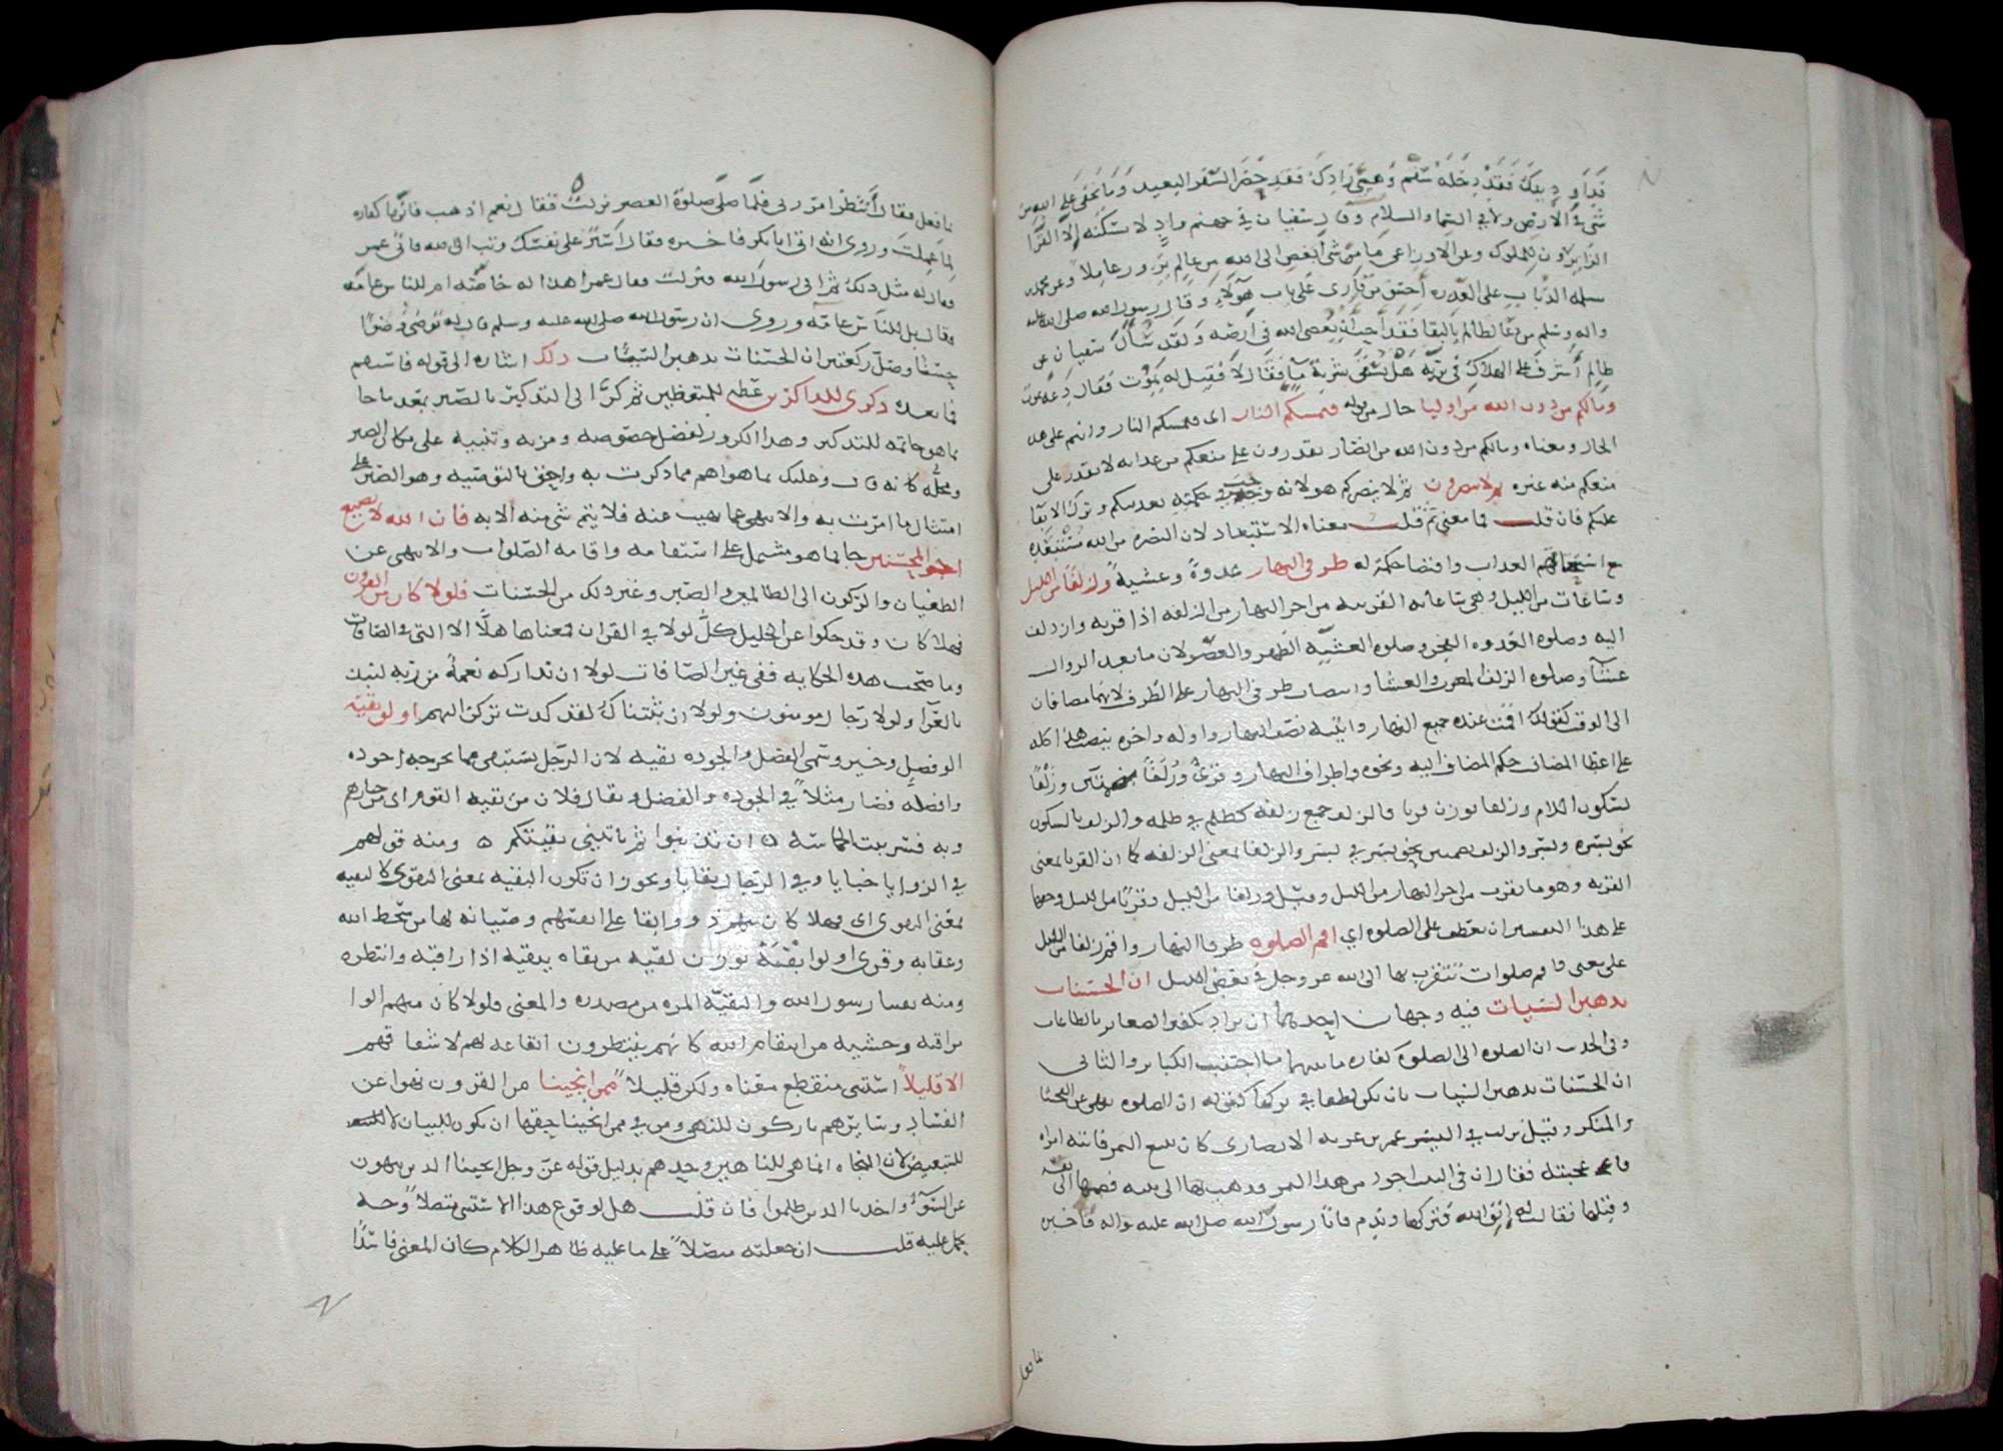 فداو دينك فقد دخله سقم وهيئ زادك فقد حضر السفر البعيد وما يخفى على الله من
شئ في الارض ولا في السماء والسلام وقال سفيان في جهنم واد لا يسكنه الا القرا
الزايرون للملوك وعن الاوزاعي ما من شئ ابغض الى الله من عالم يزور عاملا وعن محمد بن
سلمه الذباب على العذره احسن من قارى على باب هولاء وقال رسول الله صلى الله عليه
واله وسلم من دعا لظالم بالبقا فقد احب ان يعصى الله في ارضه ولقد سئل سفيان عن
ظالم اشرف على الهلاك في بريه هل يسقى شربة ما فقال لا فقيل له يموت فقال دعه يموت
وما لكم من دون الله من اوليا حال من قوله فتمسكم النار اى فتمسكم النار وانتم على هذه
الحال ومعناه وما لكم من دون الله من انصار يقدرون على منعكم من عذابه لا يقدر على
منعكم منه غيره ثم لا تنصرون ثم لا ينصركم هو لانه وجب في حكمته تعذيبكم وترك الابقا
عليكم فان قلت فما معنى ثم قلت معناه الاستبعاد لان النصره من الله مستبعده
مع استحقاقهم العذاب واقتضا حكمته له طرفى النهار غدوة وعشية وزلفا من الليل
وساعات من الليل وهي ساعاته القريبه من اخر النهار من ازلفه اذا قربه وازدلف
اليه وصلوه الغدوه الفجر وصلوه العشيه الظهر والعصر لان ما بعد الزوال
عشيا وصلوه الزلف المغرب والعشا وانتصاب طرفى النهار على الظرف لانهما مضافان
الى الوقت كقولك اقمت عنده جميع النهار واتيته نصف النهار واوله واخره ينصب هذا كله
على اعطا المضاف حكم المضاف اليه ونحوه واطراف النهار وقرئ وزلفا بضمتين وزلفا
بسكون اللام وزلفا بوزن قربا فالزلف جمع زلفه كظلم في ظلمه والزلف بالسكون
نحو بسره وبسر والزلف بضمتين نحو بسر في بسر والزلفا بمعنى الزلفه كما ان القربا بمعنى
القربه وهو ما يقرب من اخر النهار من الليل وقيل وزلفا من الليل وقربا من الليل وحقها
على هذا التفسير ان تعطف على الصلوه اي اقم الصلوه طرفا النهار واقم زلفا من الليل
على معنى واقم صلوات تتقرب بها الى الله عز وجل في بعض الليل ان الحسنات
يذهبن السيات فيه وجهان احدهما ان يراد تكفير الصغاير بالطاعات
وفي الحديث ان الصلوه الى الصلوه كفاره ما بينهما ما اجتنبت الكباير والثاني
ان الحسنات يذهبن السيات بان يكن لطفا في تركها كقوله ان الصلوه تنهى عن الفحشا
والمنكر وقيل نزلت في ابي اليسر عمرو بن غزيه الانصارى كان يبيع التمر فاتته امراه
فاعجبته فقال ان في البيت اجود من هذا التمر فذهب بها الى بيته فضمها الى نفسه
وقبلها فقالت له اتق الله فتركها وندم فاتا رسول الله صلى الله عليه واله فاخبره
بما فعل
بما فعل فقال انتظر امر ربى فلما صلى صلوة العصر نزلت فقال نعم اذهب فانها كفاره
لما عملت وروى انه اتى ابابكر فاخبره فقال استر على نفسك وتب الى الله فاتى عمر
فقال له مثل ذلك ثم اتى رسول الله فنزلت فقال عمر اهذا له خاصه ام للناس عامه
فقال بل للناس عامه وروى ان رسول الله صلى الله عليه وسلم قال له توضئ وضوا
حسنا وصل ركعتين ان الحسنات يذهبن السيئات ذلك اشاره الى قوله فاستقم
فما بعده ذكرى للذاكرين عظه للمتعظين ثم كر الى التذكير بالصبر بعد ما جا
بما هو خاتمه للتذكير وهذا الكرور لفضل خصوصه ومزيه وتنبيه على مكان الصبر
ومحله كانه قال وعليك بما هو اهم مما ذكرت به واحق بالتوصيه وهو الصبر على
امتثال ما امرت به والانتهى عما نهيت عنه فلا يتم شئ منه الا به فان الله لا يضيع
اجر المحسنين جا بما هو مشتمل على استقامه واقامه الصلوات والانتهى عن
الطغيان والركون الى الظالمين والصبر وغير ذلك من الحسنات فلولا كان من القرون
فهلا كان وقد حكوا عن الخليل كل لولا في القران فمعناها هلا الا التي في الصافات
وما صحت هذه الحكايه ففي غير الصافات لولا ان تداركه نعمة من ربه لنبذ
بالعرا ولولا رجال مومنون ولولا ان ثبتناك لقد كدت تركن اليهم اولو بقية
الو فضل وخير وسمى الفضل والجوده بقيه لان الرجل يستبقى مما يخرجه اجوده
وافضله فصار مثلا في الجوده والفضل ويقال فلان من بقيه القوم اى من خيارهم
وبه فسر بيت الحماسه ان تذنبوا ثم ياتيني بقيتكم ومنه قولهم
في الزوايا خبايا وفي الرجال بقايا ويجوز ان تكون البقيه بمعنى البقوى كالتقيه
بمعنى التقوى اى فهلا كان منهم ذوو ابقا على انفسهم وصيانه لها من سخط الله
وعقابه وقرى اولوا بقية بوزن لقيه من بقاه يبقيه اذا راقبه وانتظره
ومنه بقينا رسول الله والبقية المره من مصدره والمعنى فلولا كان منهم الوا
مراقبه وخشيه من انتقام الله كانهم ينتظرون ايقاعه لهم لاشفاقهم
الا قليلا استثنى منقطع معناه ولكن قليلا ممن انجينا من القرون نهوا عن
الفساد وسايرهم تاركون للنهى ومن في ممن انجينا حقها ان تكون للبيان لا
للتبعيض لان النجاه انما هي للناهين وحدهم بدليل قوله عز وجل انجينا الذين ينهون
عن السوء واخذنا الذين ظلموا فان قلت هل لوقوع هذا الاستثنى متصلا وجه
يحمل عليه قلت ان جعلته متصلا على ما عليه ظاهر الكلام كان المعنى فاسدا